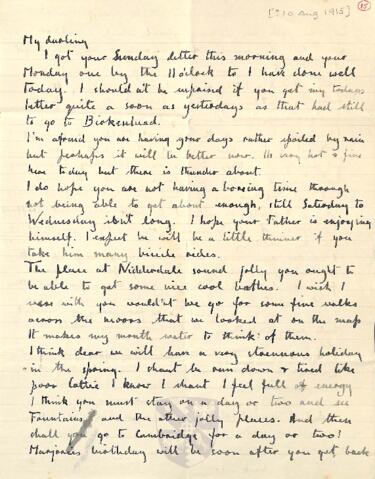 [? 10 Aug 1915]
15
My darling
I got your Sunday letter this morning and your
Monday one by the 11 O'clock so I have done well
today. I should n't be surprised if you get my todays
letter quite a soon as yesterdays as that had still
to go to Birkenhead.
I'm afraid you are having your days rather spoiled by rain
but perhaps it will be better now. Its very hot & fine
here today but there is thunder about.
I do hope you are not having a boresing time through
not being able to get about enough, still Saturday to
Wednesday isn't long. I hope your Father is enjoying
himself. I expect he will be a little thinner if you
take him many bicicle rides.
The place at Nidderdale sound jolly you ought to
be able to get some nice cool bathes. I wish I
were with you would'nt we go for some fine walks
across the moors that we looked at on the map
It makes my mouth water to think of them.
I think dear we will have a very strenuous holiday
in the spring. I shant be run down & tired like
poor I know I shant I feel full of energy
I think you must stay on a day or two and see
Fountains and the other jolly places. And then
shall you go to Cambridge for a day or two?
Marjories birthday will be soon after you get back